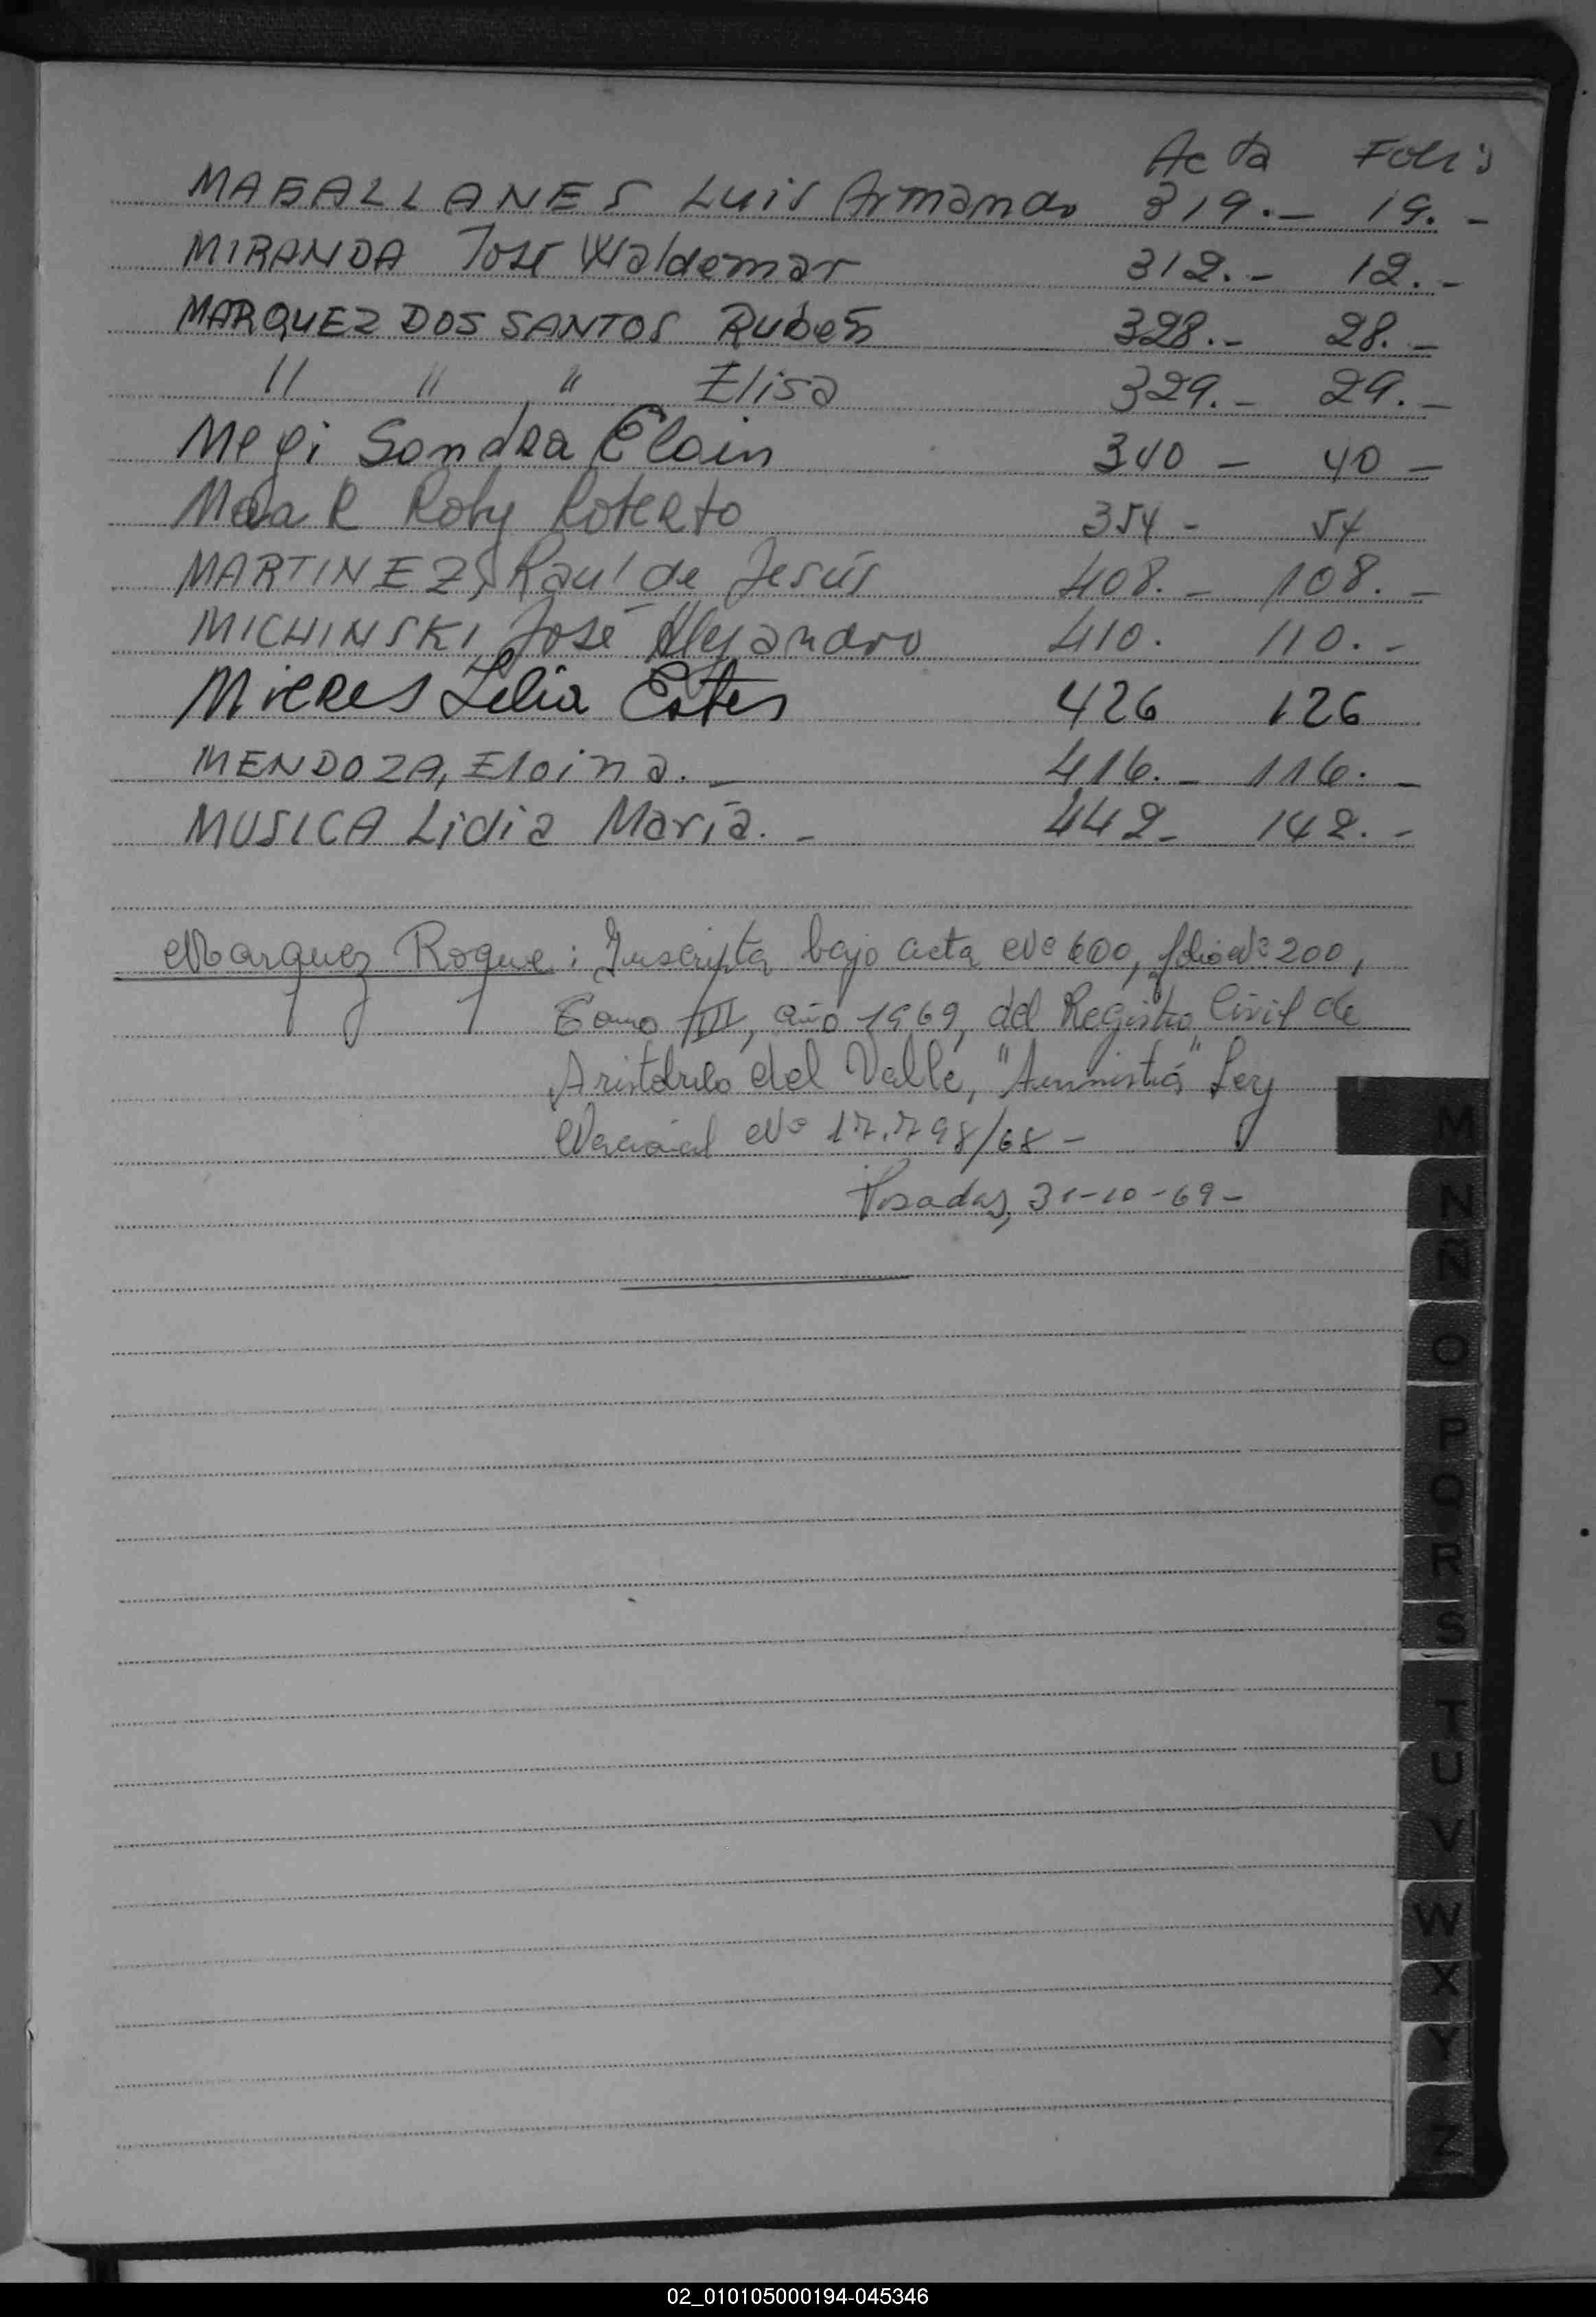 Acta Folio
MAGALLANES Luis Armando 319.- 19.-
MIRANDA José Waldemar 312.- 12.-
MARQUEZ DOS SANTOS Rubén 328.- 28.-
" " " Elisa 329.- 29.-
Megi Sandra Eloin 340 - 40 -
Roby Roberto 354 - 54
MARTINEZ, Raul de Jesús 408.- 108.-
MICHINSKI, José Alejandro 410. 110.-
Mieres Lelia Ester 426 126
MENDOZA, Eloina.- 416.- 116.-
MUSICA Lidia María.- 442- 142.-
Marquez Roque: Inscripta bajo acta Nº 600, folio Nº 200,
Tomo III, año 1969, del Registro Civil de
Aristóbulo del Valle, "Amnistía" Ley
Nacional Nº 17.798/68-
Posadas, 31-10-69-
M
N
N
O
P
Q
R
S
T
U
V
W
X
Y
Z
02_010105000194-045346